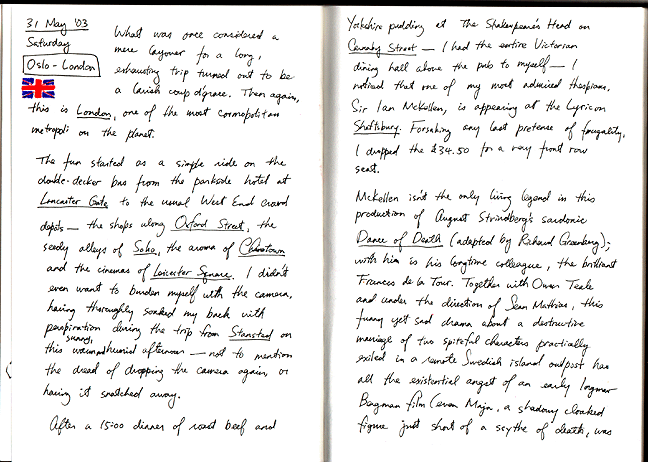 31 May '03
Saturday
Oslo - London
What was once considered a
mere layover for a long,
exhausting trip turned out to be
a lavish coup d'grace. Then again,
this is London, one of the most cosmopolitan
metropoli on the planet.
The fun started as a simple ride on the
double-decker bus from the parkside hotel at
Lancaster Gate to the usual West End crowd
depots — the shops along Oxford Street, the
seedy alleys of Soho, the aroma of Chinatown
and the cinemas of Leicester Square. I didn't
even want to burden myself with the camera,
having thoroughly soaked my back with
perspiration during the trip from Stansted on
this warm and humid afternoon — not to mention
the dread of dropping the camera again, or
having it snatched away.
After a 15:00 dinner of roast beef and
Yorkshire pudding at The Shakespeare's Head on
Carnaby Street — I had the entire Victorian
dining hall above the pub to myself — I
noticed that one of my most admired thespians,
Sir Ian McKellen, is appearing at the Lyric on
Shaftsbury. Forsaking any last pretense of frugality,
I dropped the £34.50 for a very front row
seat.
McKellen isn't the only living legend in this
production of August Strindberg's sardonic
Dance of Death (adapted by Richard Greenberg);
with him is his longtime colleague, the brilliant
Frances de la Tour. Together with Owen Teale
and under the direction of Sean Mathias, this
funny yet sad drama about a destructive
marriage of two spiteful characters practially
exiled in a remote Swedish island outpost has
all the existential angst of an early Ingmar
Bergman film (even Maja, a shadowy cloaked
figure just short of a scythe of death, was